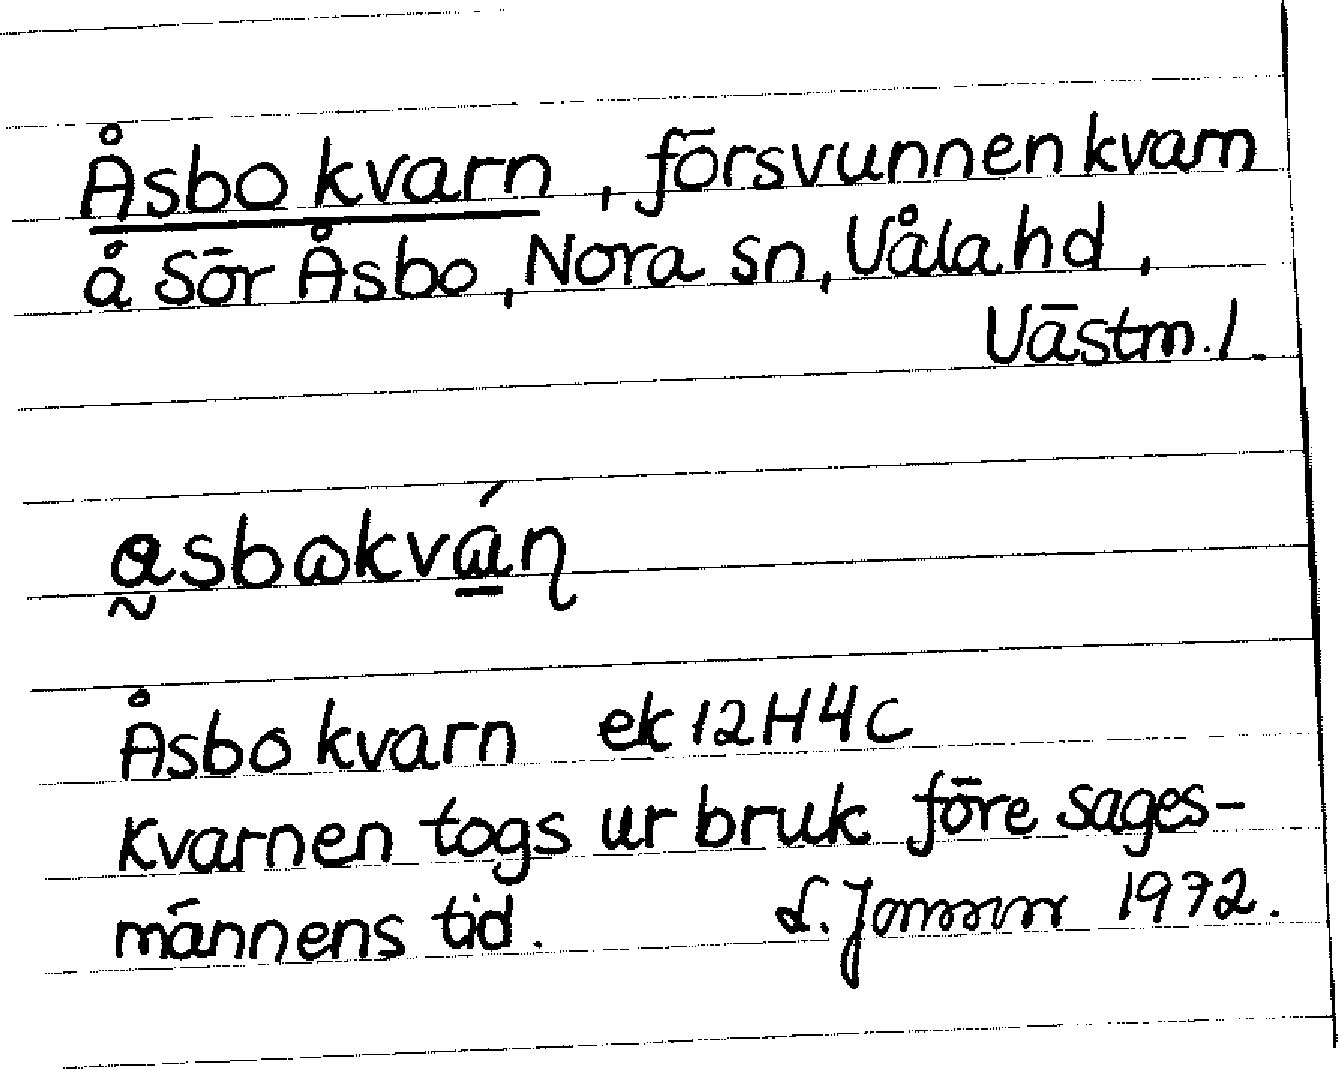 Åsbo kvarn, försvunnen kvarn
å Sör Åsbo, Nora sn, Våla hd,
Västm. l.
Åsbo kvarn ek 12H4c
Kvarnen togs ur bruk före sages-
männens tid. 1972.